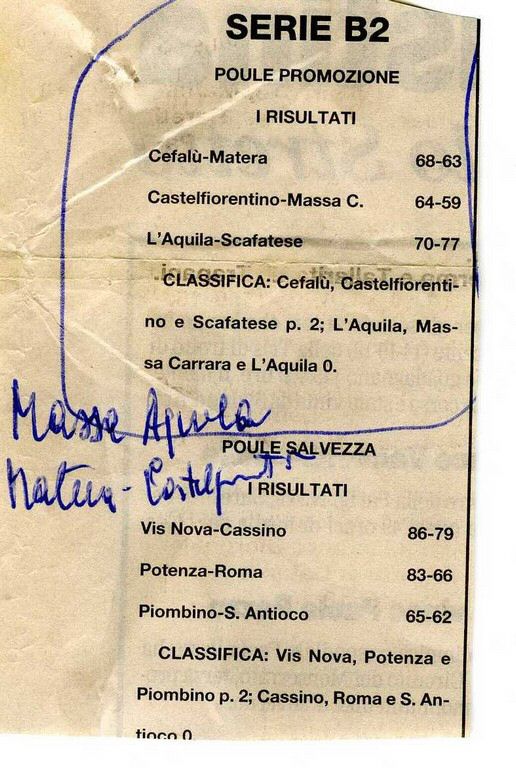 SERIE B2
POULE PROMOZIONE
I RISULTATI
Cefalù-Matera 68-63
Castelfiorentino-Massa C. 64-59
L'Aquila-Scafatese 70-77
CLASSIFICA: Cefalù, Castelfiorenti-
no e Scafatese p. 2; L'Aquila, Mas-
sa Carrara e L'Aquila 0.
Massa Aquila
POULE SALVEZZA
Matera-
I RISULTATI
Vis Nova-Cassino 86-79
Potenza-Roma 83-66
Piombino-S. Antioco 65-62
CLASSIFICA: Vis Nova, Potenza e
Piombino p. 2; Cassino, Roma e S. An-
tioco 0.